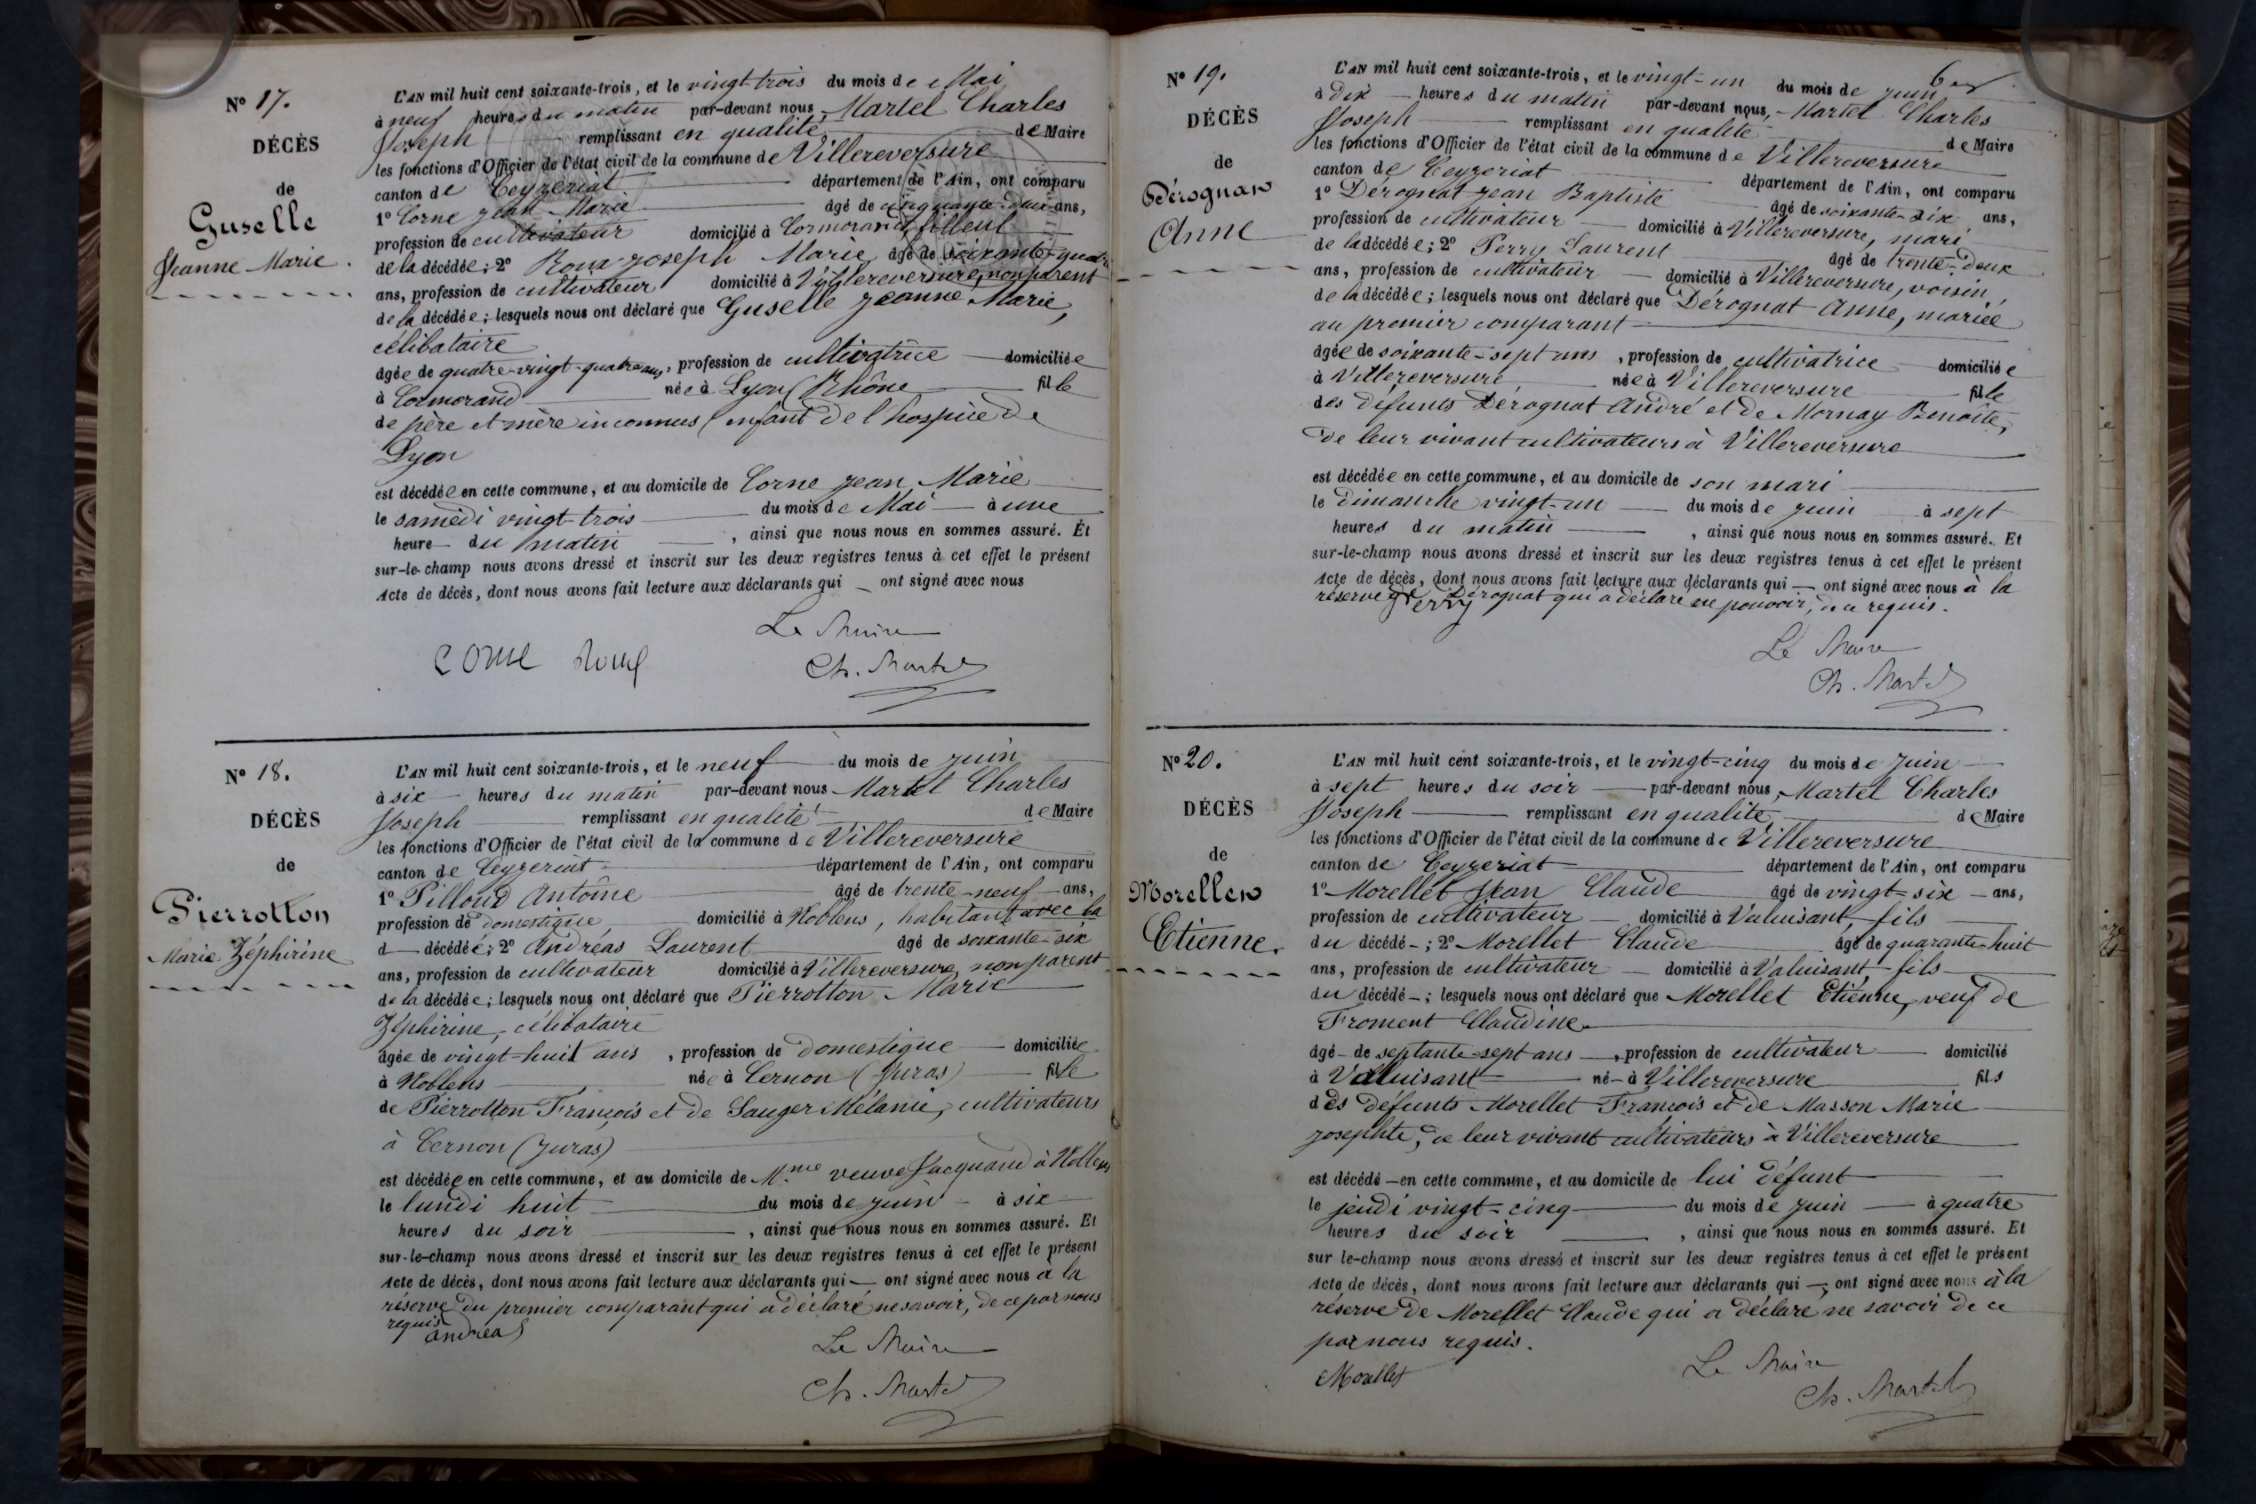 N° 17.
DÉCÈS
de
Guselle
Jeanne Marie.
L'AN mil huit cent soixante-trois, et le vingt-trois du mois de Mai
à neuf heures du matin par-devant nous, Martel Charles
Joseph remplissant en qualité de Maire
les fonctions d'Officier de l'état civil de la commune de Villereversure
canton de Ceyzeriat département de l'Ain, ont comparu
1° Corne Jean Marie âgé de cinquante-deux ans,
profession de cultivateur domicilié à Cormorand, filleul
de la décédée; 2° Roux Joseph Marie, âgé de soixante-quatre
ans, profession de cultivateur domicilié à Villereversure, non parent
de la décédée; lesquels nous ont déclaré que Guselle Jeanne Marie,
célibataire
âgée de quatre-vingt-quatre ans, profession de cultivatrice domiciliée
à Cormorand née à Lyon (Rhône fille
de père et mère inconnus (enfant de l'hospice de
Lyon
est décédée en cette commune, et au domicile de Corne Jean Marie
le samedi vingt-trois du mois de Mai à une
heure du matin, ainsi que nous nous en sommes assuré. Et
sur-le-champ nous avons dressé et inscrit sur les deux registres tenus à cet effet le présent
Acte de décès, dont nous avons fait lecture aux déclarants qui ont signé avec nous
Le Maire
Corne Roux Ch. Martel
N° 18.
DÉCÈS
de
Pierrotton
Marie Zéphirine
L'AN mil huit cent soixante-trois, et le neuf du mois de Juin
à six heures du matin par-devant nous Martel Charles
Joseph remplissant en qualité de Maire
les fonctions d'Officier de l'état civil de la commune de Villereversure
canton de Ceyzeriat département de l'Ain, ont comparu
1° Pilloud Antoine âgé de trente-neuf ans,
profession de domestique domicilié à Noblens, habitant avec la
d décédée; 2° Andréas Laurent âgé de soixante-six
ans, profession de cultivateur domicilié à Villereversure, non parent
de la décédée; lesquels nous ont déclaré que Pierrotton Marie
Zéphirine, célibataire
âgée de vingt-huit ans, profession de domestique domiciliée
à Noblens née à Cernon (Juras) fille
de Pierrotton François et de Sauger Mélanie, cultivateurs
à Cernon (Juras)
est décédée en cette commune, et au domicile de Mme veuve Jacquand à Noblens
le lundi huit du mois de Juin à six
heures du soir, ainsi que nous nous en sommes assuré. Et
sur-le-champ nous avons dressé et inscrit sur les deux registres tenus à cet effet le présent
Acte de décès, dont nous avons fait lecture aux déclarants qui ont signé avec nous à la
réserve du premier comparant qui a déclaré ne savoir, de ce par nous
requis
Andréas
Le Maire
Ch. Martel
N° 19.
DÉCÈS
de
Dérognat
Anne
L'AN mil huit cent soixante-trois, et le vingt-un du mois de Juin
à dix heures du matin par-devant nous, Martel Charles
Joseph remplissant en qualité de Maire
les fonctions d'Officier de l'état civil de la commune de Villereversure
canton de Ceyzeriat département de l'Ain, ont comparu
1° Dérognat Jean Baptiste âgé de soixante-six ans,
profession de cultivateur domicilié à Villereversure, mari
de la décédée; 2° Perry Laurent âgé de trente-deux
ans, profession de cultivateur domicilié à Villereversure, voisin
de la décédée; lesquels nous ont déclaré que Dérognat Anne, mariée
au premier comparant
âgée de soixante-sept ans, profession de cultivatrice domiciliée
à Villereversure née à Villereversure fille
des défunts Dérognat André et de Mornay Benoîte,
de leur vivant cultivateurs à Villereversure
est décédée en cette commune, et au domicile de son mari
le dimanche vingt-un du mois de Juin à sept
heures du matin, ainsi que nous nous en sommes assuré. Et
sur-le-champ nous avons dressé et inscrit sur les deux registres tenus à cet effet le présent
Acte de décès, dont nous avons fait lecture aux déclarants qui ont signé avec nous à la
réserve de Dérognat qui a déclaré ne pouvoir, de ce requis.
Perry
Le Maire
Ch. Martel
N° 20.
DÉCÈS
de
Morellet
Etienne.
L'AN mil huit cent soixante-trois, et le vingt-cinq du mois de Juin
à sept heures du soir par-devant nous, Martel Charles
Joseph remplissant en qualité de Maire
les fonctions d'Officier de l'état civil de la commune de Villereversure
canton de Ceyzeriat département de l'Ain, ont comparu
1° Morellet Jean Claude âgé de vingt-six ans,
profession de cultivateur domicilié à Valuisant, fils
du décédé; 2° Morellet Claude âgé de quarante-huit
ans, profession de cultivateur domicilié à Valuisant, fils
du décédé; lesquels nous ont déclaré que Morellet Etienne, veuf de
Froment Claudine
âgé de septante-sept ans, profession de cultivateur domicilié
à Valuisant né à Villereversure fils
des défunts Morellet François et de Masson Marie
Josephte, de leur vivant cultivateurs à Villereversure
est décédé en cette commune, et au domicile de lui défunt
le jeudi vingt-cinq du mois de Juin à quatre
heures du soir, ainsi que nous nous en sommes assuré. Et
sur le-champ nous avons dressé et inscrit sur les deux registres tenus à cet effet le présent
Acte de décès, dont nous avons fait lecture aux déclarants qui ont signé avec nous à la
réserve de Morellet Claude qui a déclaré ne savoir de ce
par nous requis.
Morellet
Le Maire
Ch. Martel